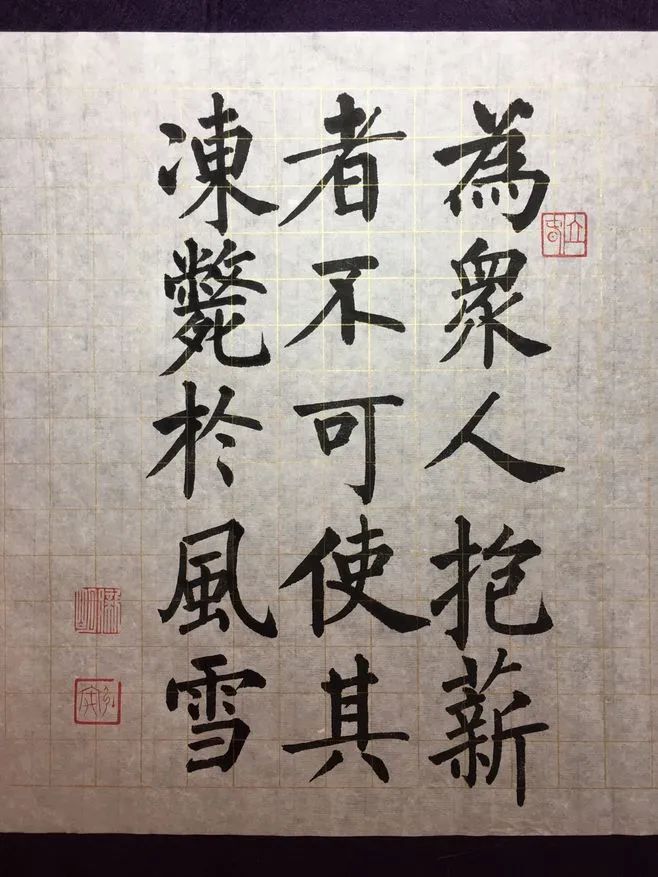 為衆人抱薪
者不可使其
凍斃於風雪